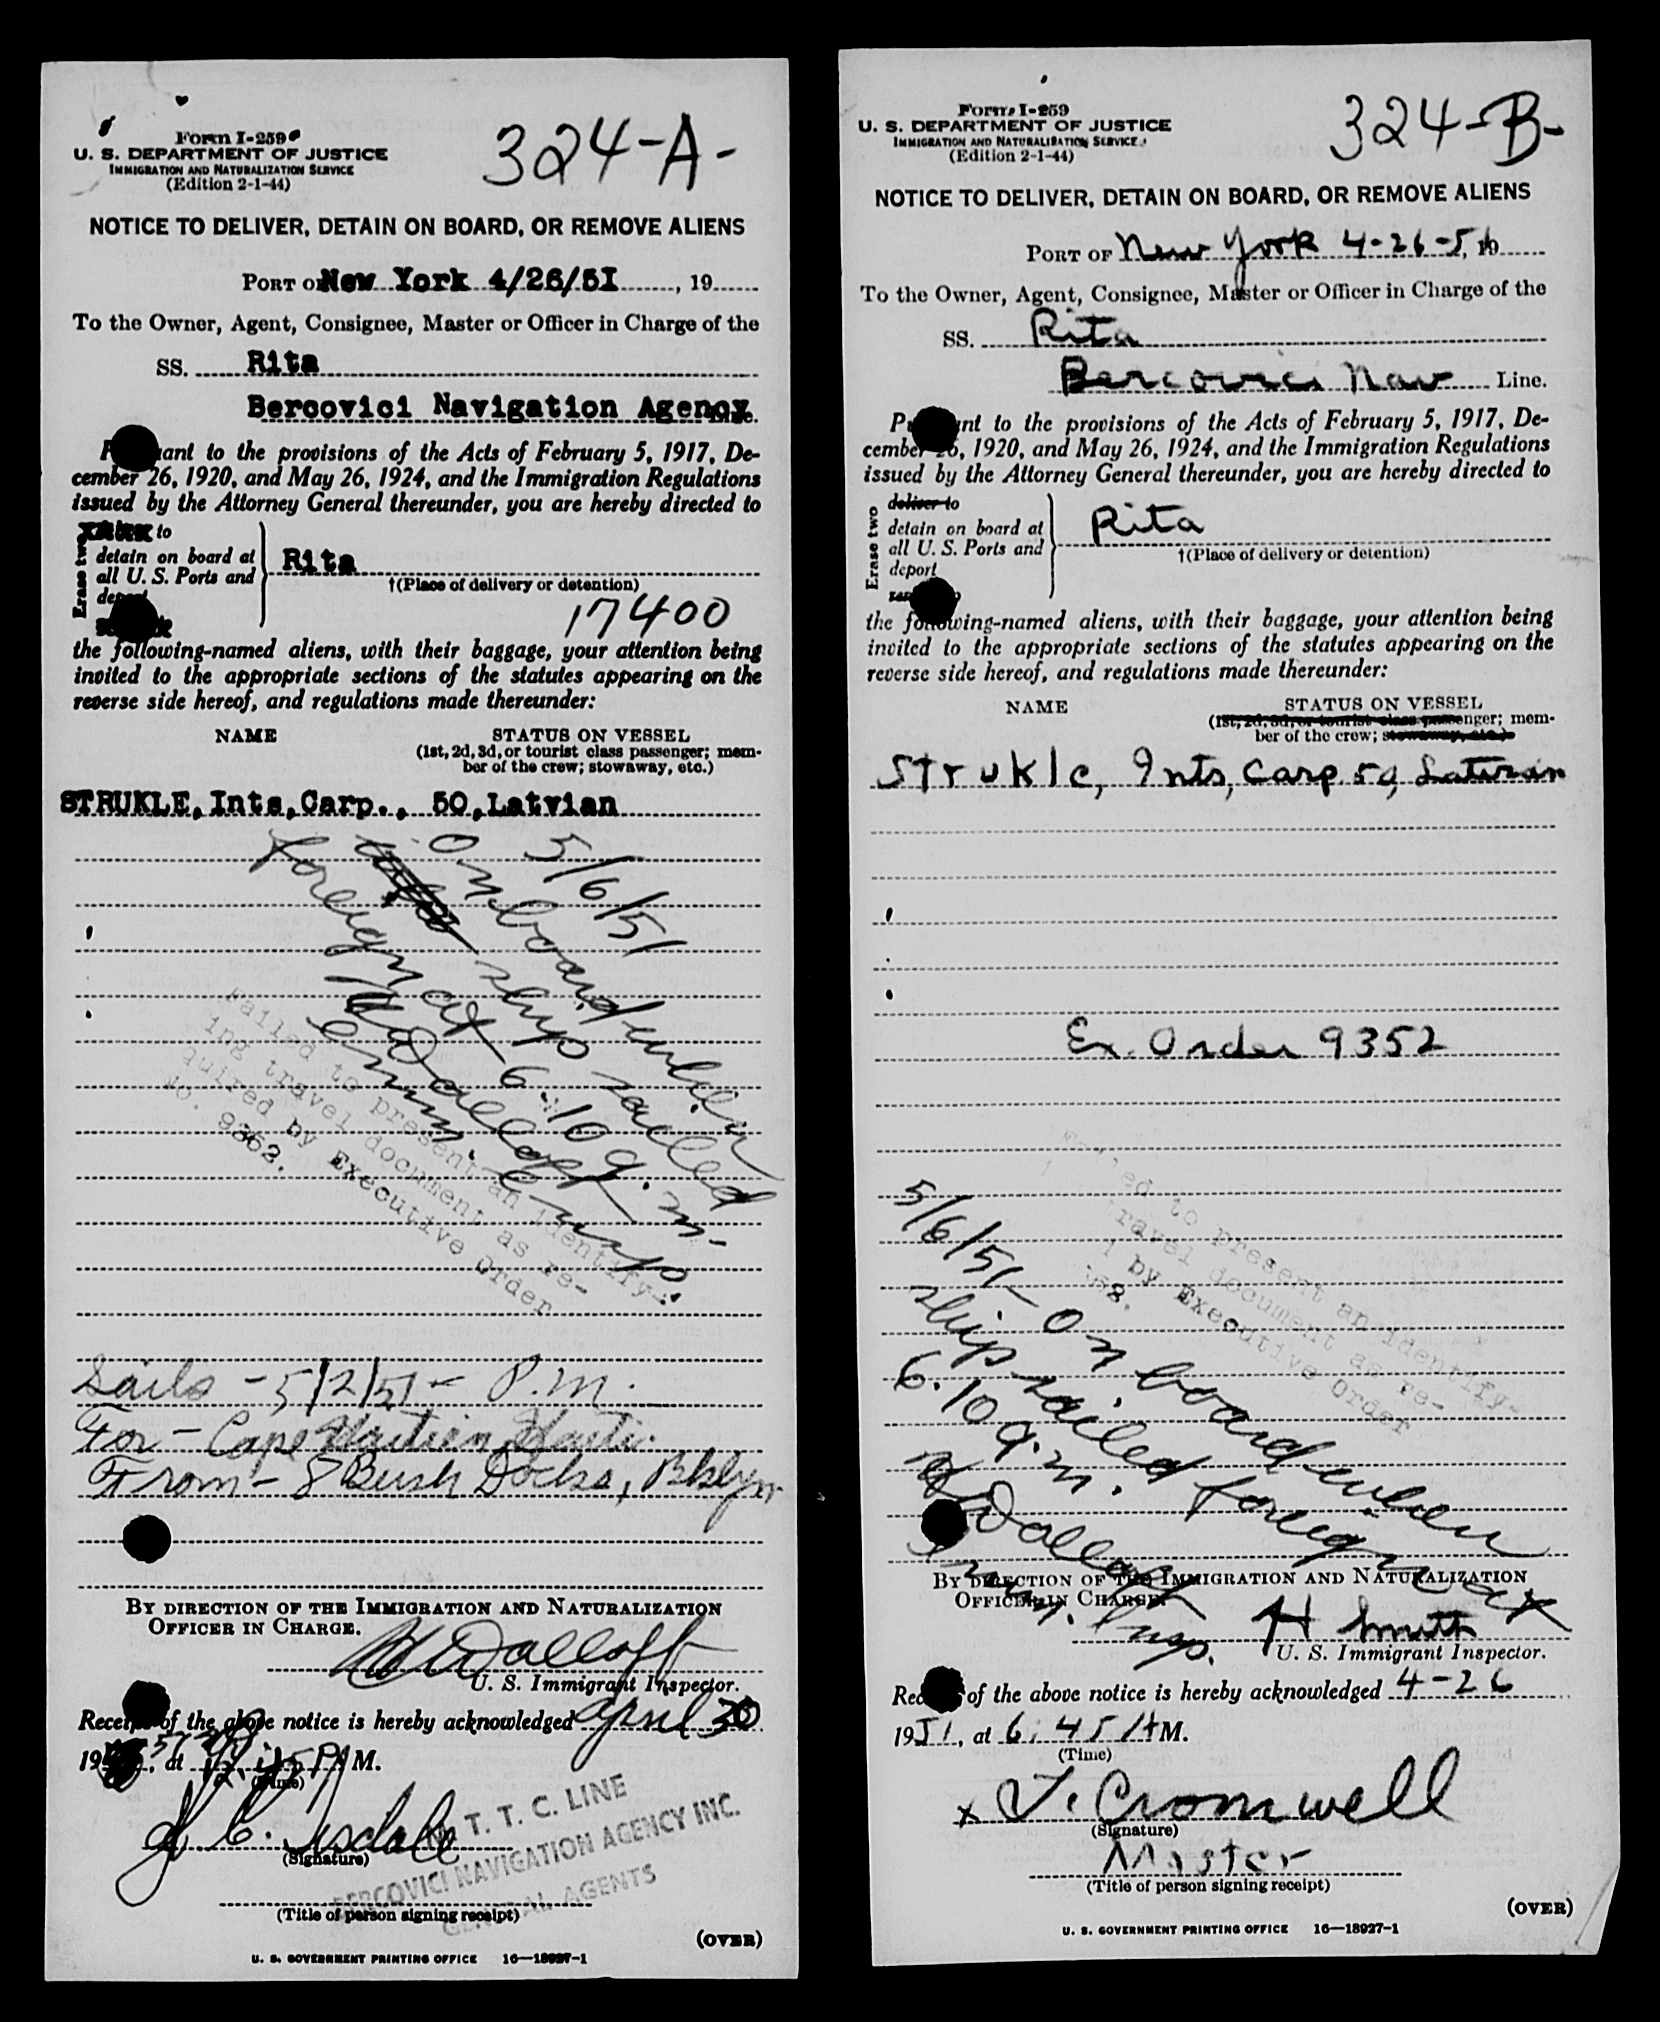 Form I-259
U. S. DEPARTMENT OF JUSTICE
IMMIGRATION AND NATURALIZATION SERVICE
(Edition 2-1-44)
324-A-
NOTICE TO DELIVER, DETAIN ON BOARD, OR REMOVE ALIENS
PORT OF New York 4/26/51, 19
To the Owner, Agent, Consignee, Master or Officer in Charge of the
SS. Rita
Bercovici Navigation Agency
ant to the provisions of the Acts of February 5, 1917, De-
cember 26, 1920, and May 26, 1924, and the Immigration Regulations
issued by the Attorney General thereunder, you are hereby directed to
to
Erase two
detain on board at
all U. S. Ports and
deport
Rita
†(Place of delivery or detention)
17400
the following-named aliens, with their baggage, your attention being
invited to the appropriate sections of the statutes appearing on the
reverse side hereof, and regulations made thereunder:
NAME
STATUS ON VESSEL
(1st, 2d, 3d, or tourist class passenger; mem-
ber of the crew; stowaway, etc.)
STRUKLE, Ints, Carp., 50, Latvian
5/6/51
On board when
ship sailed
foreign at 6:10 a.m.
Imm. Insp.
Failed to present an identify-
ing travel document as re-
quired by Executive Order
No. 9352.
Sails - 5/2/51 - P.M.
For - Cape Haitien Haiti.
From - 8 Bush Docks, Bklyn
BY DIRECTION OF THE IMMIGRATION AND NATURALIZATION
OFFICER IN CHARGE.
U. S. Immigrant Inspector.
Receipt of the above notice is hereby acknowledged April 30
19 51, at 12:45 P M.
(Time)
(Signature)
T. T. C. LINE
BERCOVICI NAVIGATION AGENCY INC.
GENERAL AGENTS
(Title of person signing receipt)
(OVER)
U. S. GOVERNMENT PRINTING OFFICE 16—18927-1
Form I-259
U. S. DEPARTMENT OF JUSTICE
IMMIGRATION AND NATURALIZATION SERVICE
(Edition 2-1-44)
324-B-
NOTICE TO DELIVER, DETAIN ON BOARD, OR REMOVE ALIENS
PORT OF New York 4-26-51, 19
To the Owner, Agent, Consignee, Master or Officer in Charge of the
SS. Rita
Bercovici Nav Line.
nt to the provisions of the Acts of February 5, 1917, De-
cember 26, 1920, and May 26, 1924, and the Immigration Regulations
issued by the Attorney General thereunder, you are hereby directed to
deliver to
Erase two
detain on board at
all U. S. Ports and
deport
Rita
†(Place of delivery or detention)
the following-named aliens, with their baggage, your attention being
invited to the appropriate sections of the statutes appearing on the
reverse side hereof, and regulations made thereunder:
NAME
STATUS ON VESSEL
(1st, 2d, 3d, or tourist class passenger; mem-
ber of the crew; stowaway, etc.)
Strukle, Ints, Carp 50, Latvian
Ex. Order 9352
ed to present an identify-
ravel document as re-
by Executive Order
5/6/51 - On board when
ship sailed foreign at
6:10 a.m.
Imm. Insp.
BY DIRECTION OF THE IMMIGRATION AND NATURALIZATION
OFFICER IN CHARGE.
H Smith
U. S. Immigrant Inspector.
of the above notice is hereby acknowledged 4-26
19 51, at 6:45 A M.
(Time)
x J. Cromwell
(Signature)
Master
(Title of person signing receipt)
(OVER)
U. S. GOVERNMENT PRINTING OFFICE 16—18927-1